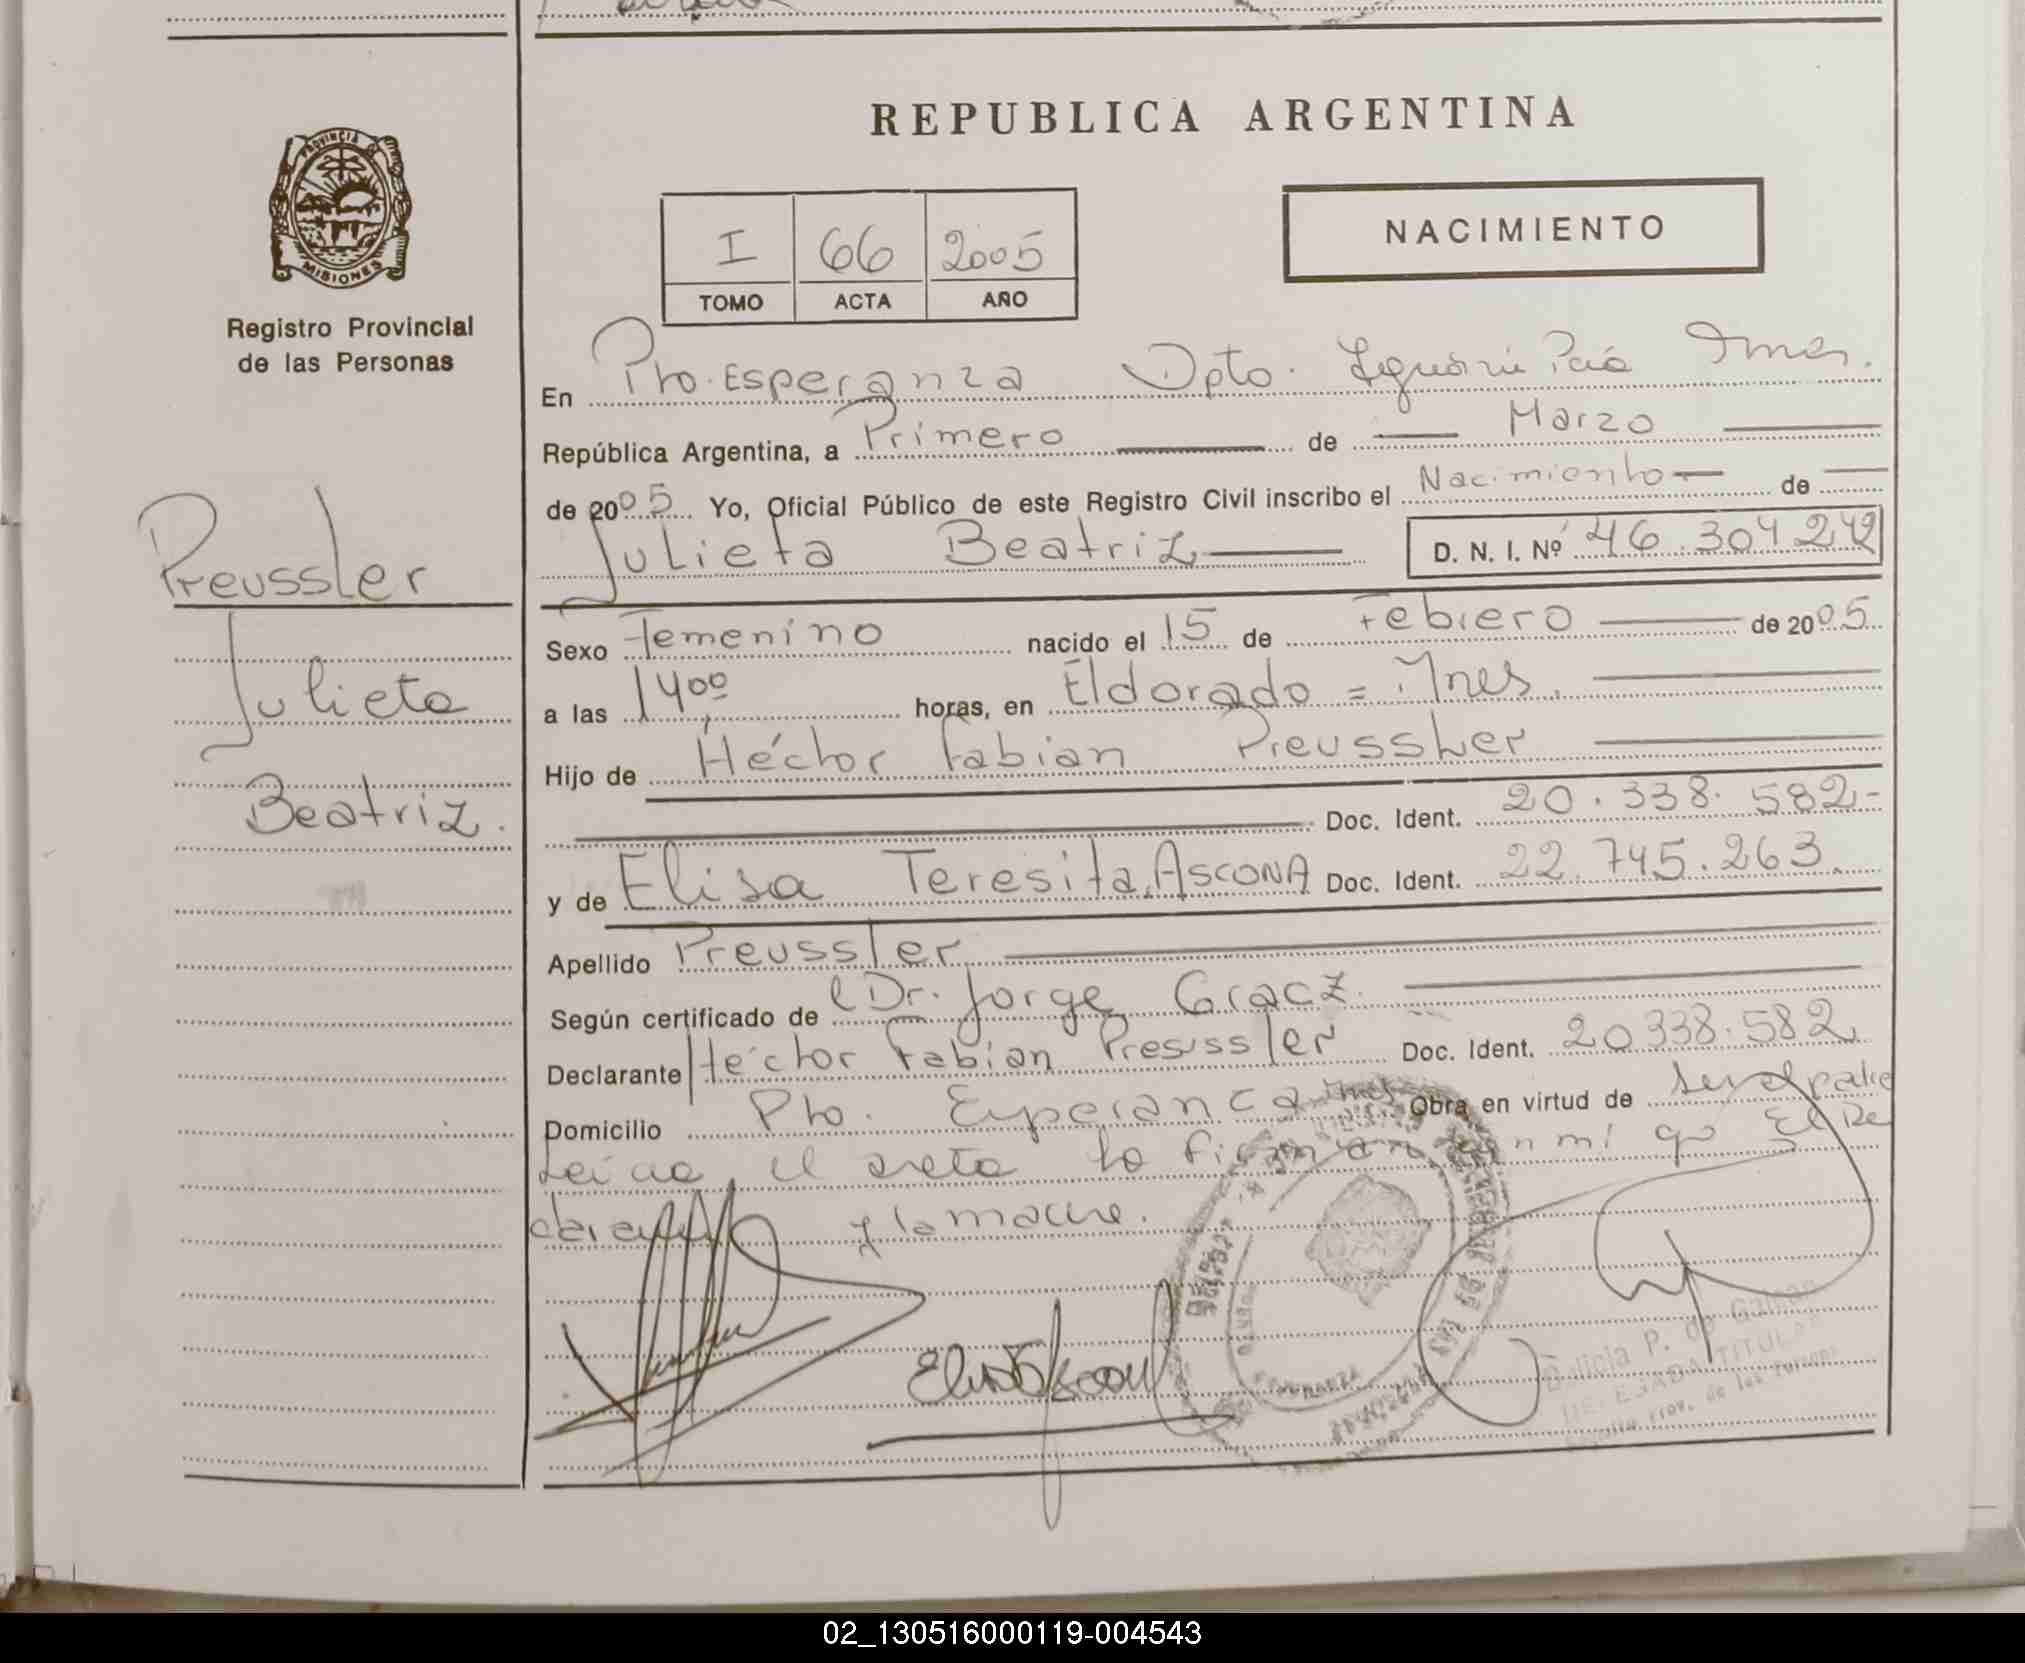 REPUBLICA ARGENTINA
PROVINCIA DE
MISIONES
Registro Provincial
de las Personas
I 66 2005
TOMO ACTA AÑO
NACIMIENTO
En Pto. Esperanza Dpto. Iguazú Pcia Mnes.
República Argentina, a Primero de Marzo
de 2005 Yo, Oficial Público de este Registro Civil inscribo el Nacimiento de
Julieta Beatriz D. N. I. Nº 46.304242
Preussler
Julieta
Beatriz.
Sexo Femenino nacido el 15 de Febrero de 2005
a las 1400 horas, en Eldorado = Mnes.
Hijo de Héctor Fabian Preussler
Doc. Ident. 20.338.582-
y de Elisa Teresita Ascona Doc. Ident. 22.745.263.
Apellido Preussler
Según certificado de Dr. Jorge Gracz.
Declarante Héctor Fabian Preussler Doc. Ident. 20338.582
Domicilio Pto. Esperanza Mnes Obra en virtud de ser el padre
Leída el acta la firman con mi go El De
clarante y la madre.
Delicia P. de
TITULAR
Prov. de las
02_130516000119-004543